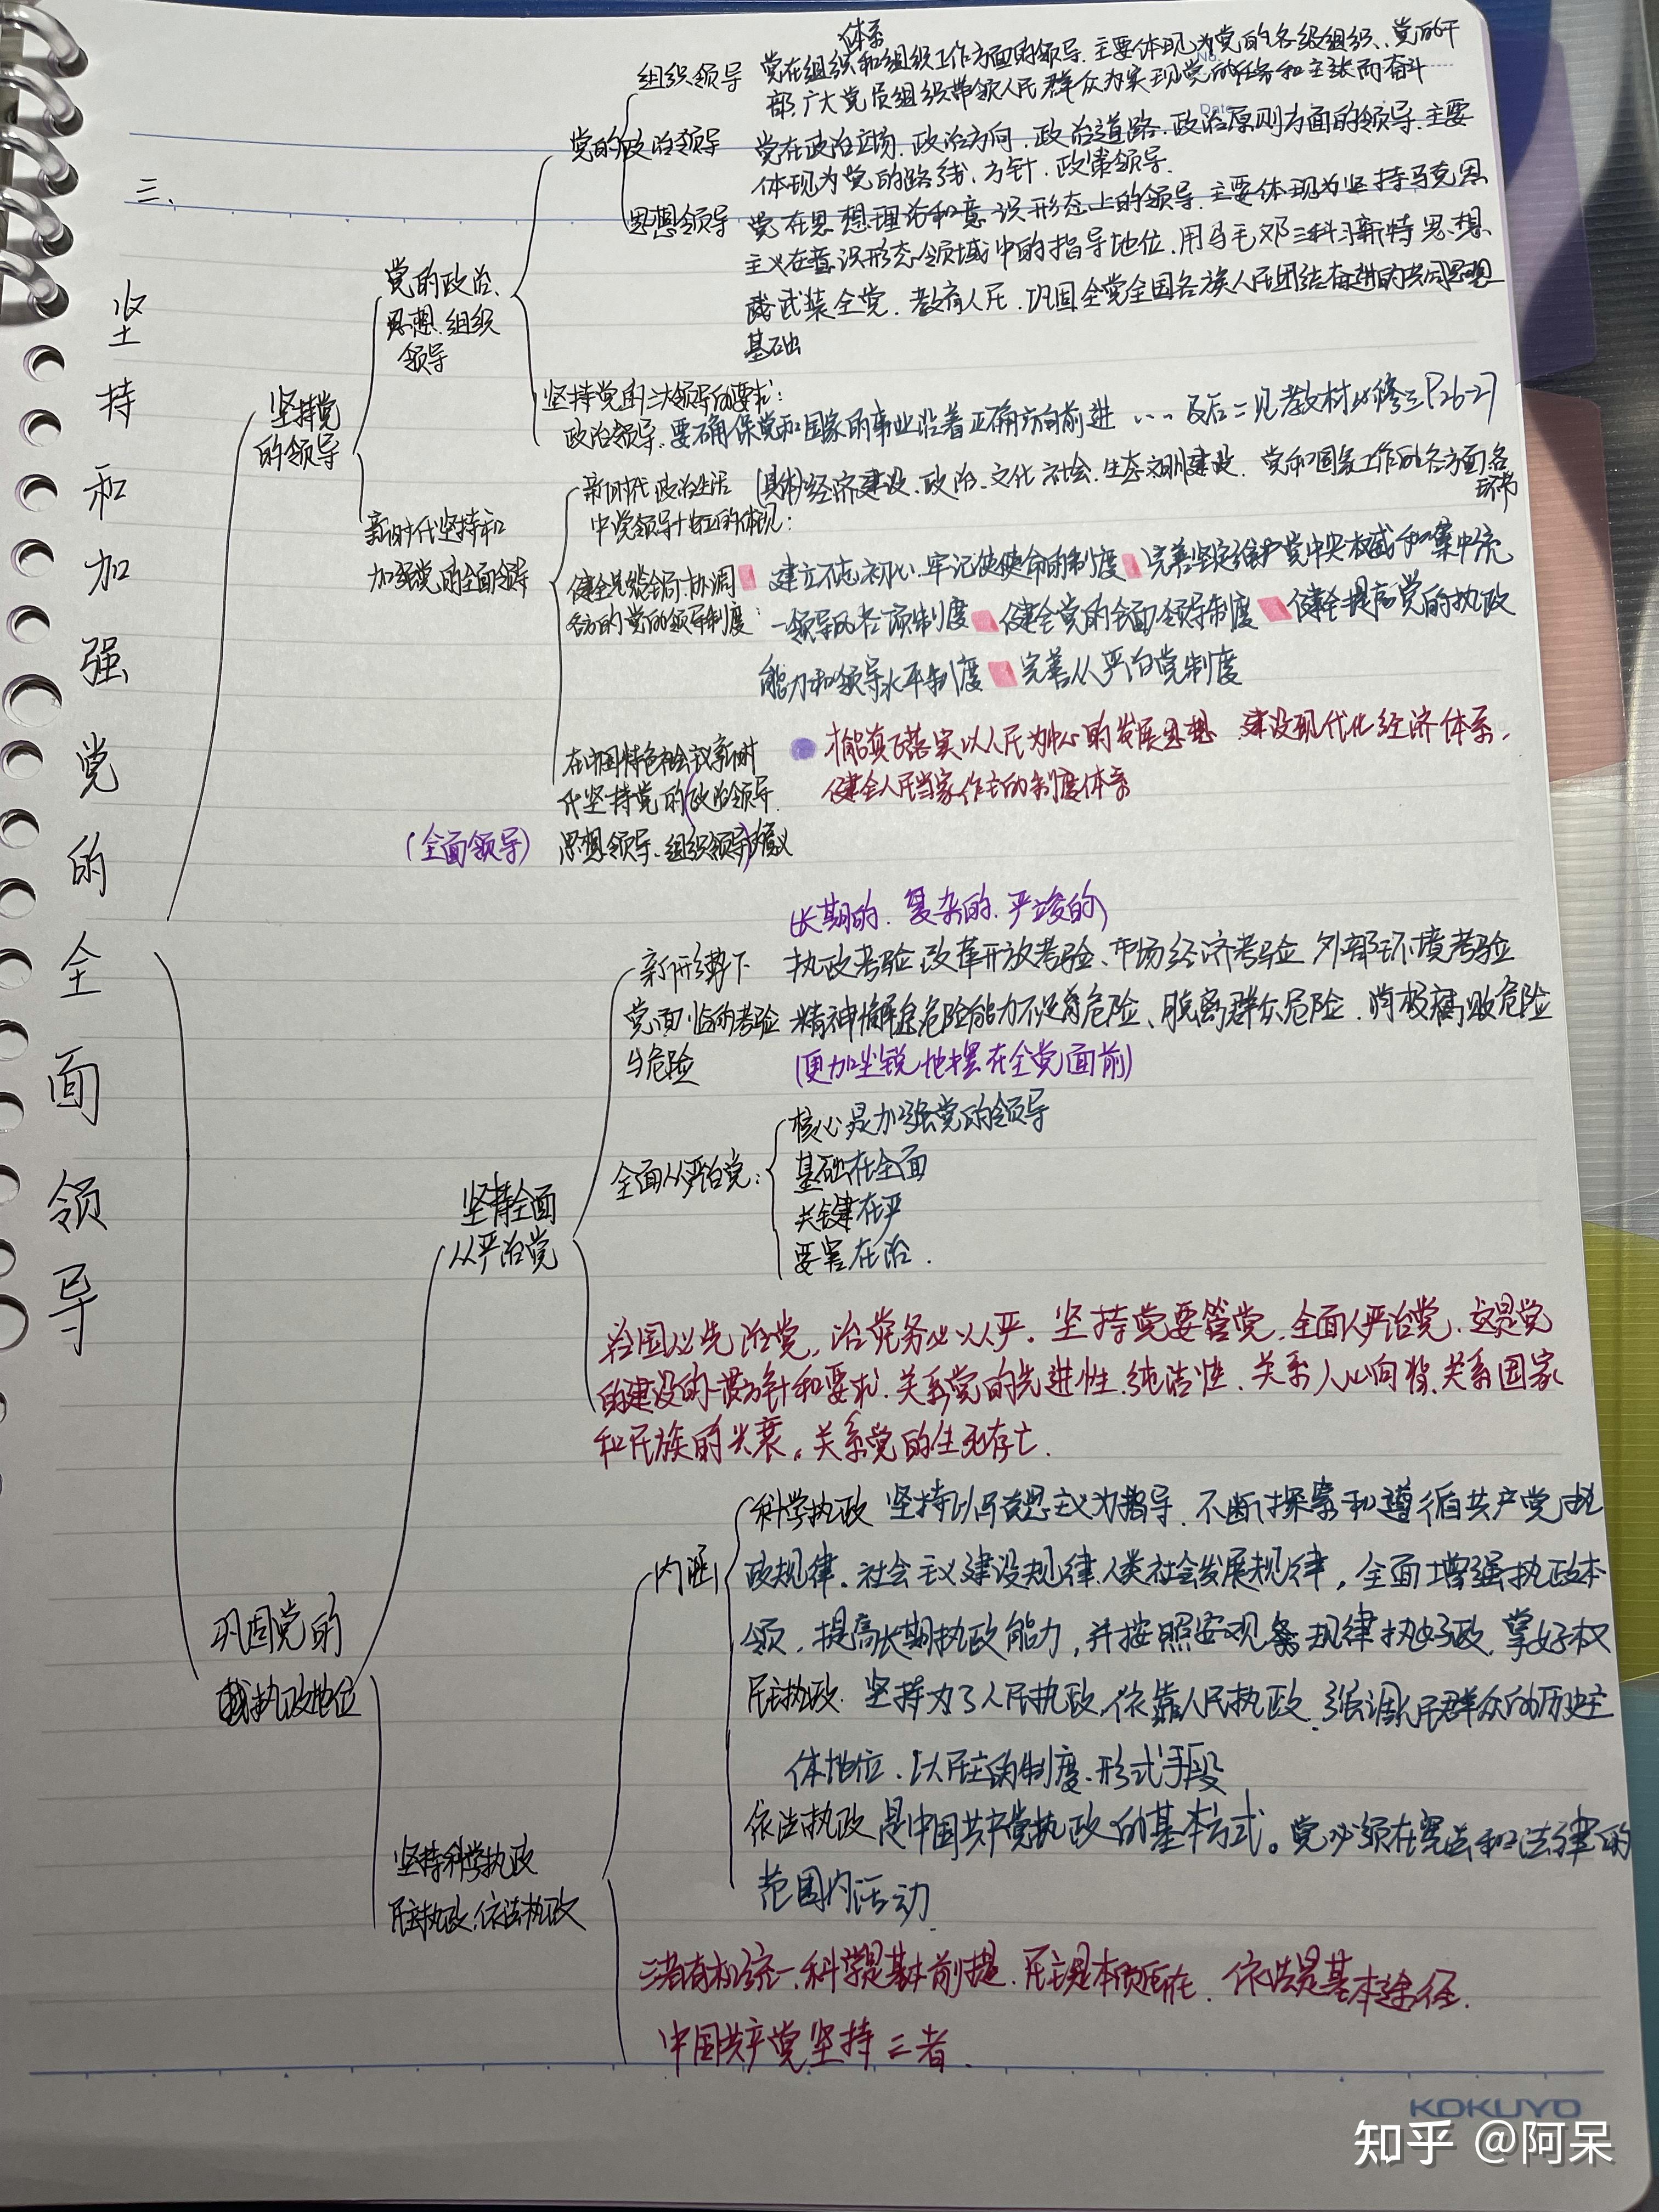 三、
坚持和加强党的全面领导
坚持党
的领导
党的政治、
思想、组织
领导
党的
组织领导
党在组织体系和组织工作方面的领导.主要体现为党的各级组织、党的干
部、广大党员组织带领人民群众为实现党的任务和主张而奋斗
政治领导
党在政治立场、政治方向、政治道路、政治原则方面的领导.主要
体现为党的路线、方针、政策领导.
思想领导
党在思想理论和意识形态上的领导.主要体现为坚持马克思
主义在意识形态领域中的指导地位.用马毛邓三科习新特思想
武装全党、教育人民、巩固全党全国各族人民团结奋进的共同思想
基础
坚持党的三大领导的要求:
政治领导:要确保党和国家的事业沿着正确方向前进 ….及后二见教材必修三P26-27
新时代坚持和
加强党的全面领导
新时代政治生活
中党领导地位的体现:
(具体)经济建设、政治、文化、社会、生态文明建设、党和国家工作的各方面各
环节
健全总揽全局、协调
各方的党的领导制度:
建立不忘初心、牢记使命的制度 完善坚定维护党中央权威和集中统
一领导的各项制度 健全党的全面领导制度 健全提高党的执政
能力和领导水平制度 完善从严治党制度
在中国特色社会主义新时
代坚持党的(政治领导.
思想领导、组织领导)意义
(全面领导)
才能真正落实以人民为中心的发展思想 建设现代化经济体系,
健全人民当家作主的制度体系
巩固党的
执政地位
坚持全面
从严治党
新形势下
党面临的考验
与危险
(长期的、复杂的、严峻的)
执政考验、改革开放考验、市场经济考验、外部环境考验
精神懈怠危险、能力不足危险、脱离群众危险、消极腐败危险
(更加尖锐地摆在全党面前)
全面从严治党:
核心是加强党的领导
基础在全面
关键在严
要害在治.
治国必先治党,治党务必从严.坚持党要管党、全面从严治党.这是党
的建设的一贯方针和要求.关系党的先进性、纯洁性、关系人心向背、关系国家
和民族的兴衰。关系党的生死存亡.
坚持科学执政
民主执政、依法执政
内涵
科学执政 坚持以马克思主义为指导.不断探索和遵循共产党执
政规律、社会主义建设规律、人类社会发展规律,全面增强执政本
领,提高长期执政能力,并按照客观规律执好政、掌好权
民主执政 坚持为了人民执政、依靠人民执政.强调人民群众的历史主
体地位、以民主的制度、形式、手段
依法执政 是中国共产党执政的基本方式。党必须在宪法和法律的
范围内活动
三者有机统一.科学是基本前提、民主是本质所在、依法是基本途径.
中国共产党坚持三者.
KOKUYO
知乎 @阿呆